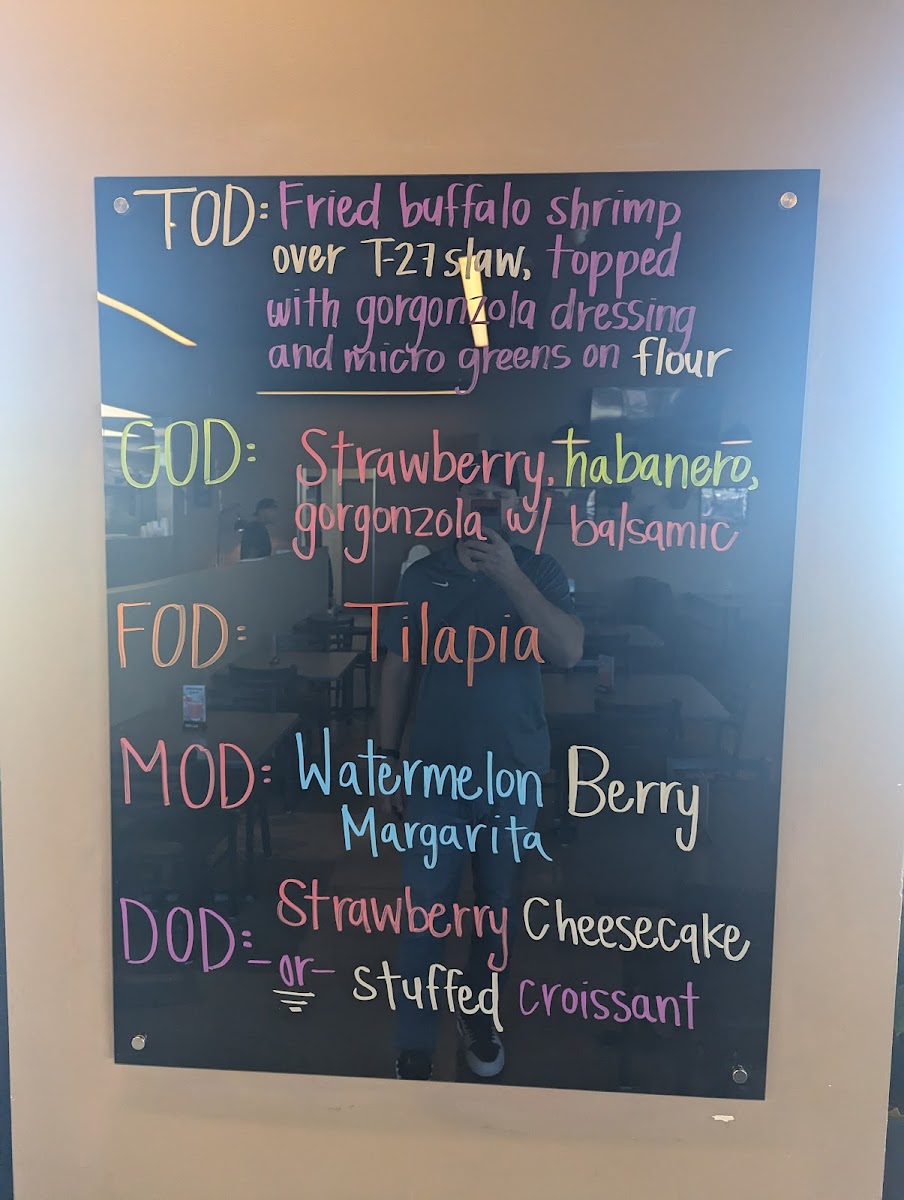 TOD: Fried buffalo shrimp
over T-27 slaw, topped
with gorgonzola dressing
and micro greens on flour
GOD: Strawberry, habanero,
gorgonzola w/ balsamic
FOD: Tilapia
MOD: Watermelon Berry
Margarita
DOD: Strawberry Cheesecake
-or- stuffed croissant